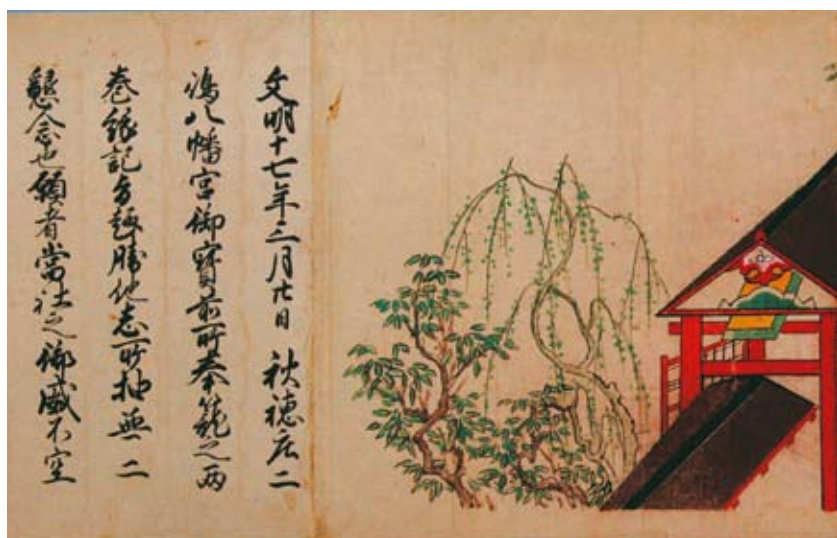 文明十七年三月廿日　秋穂庄二
嶋八幡宮御寳前所奉籠之両
巻縁記者趣勝他志所抽無二
懇念也願者當社之御威不空